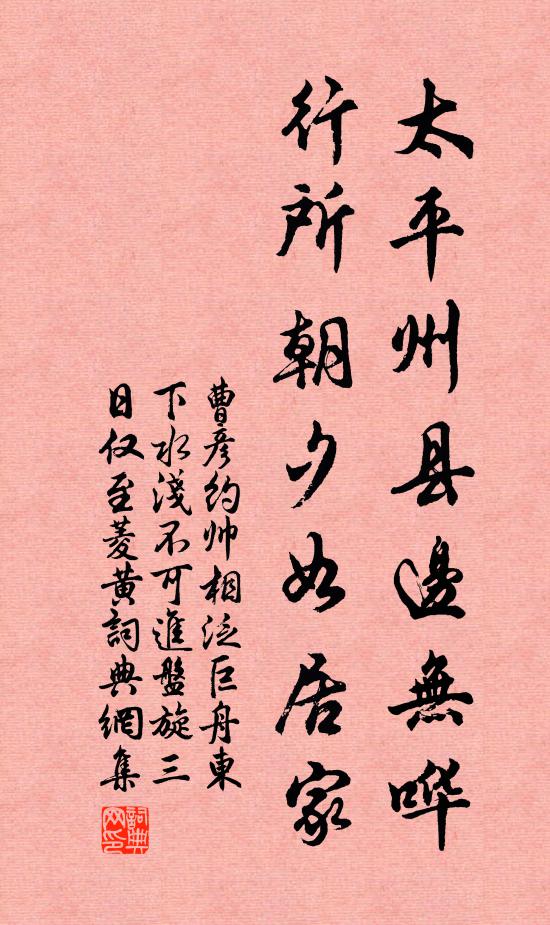 太平州县邊無哗
行所朝夕如居家
曹彦约帅相泛巨舟東
下水淺不可進盤旋三
日仅至菱黄詞典網集
詞典网印